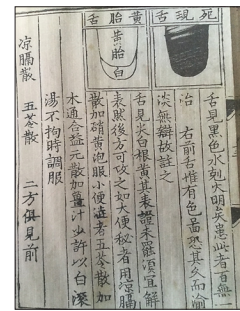 死現舌
黃胎舌
黃胎
白
舌見黑色水剋火明矣患此者百無一
治　右前舌惟有色圖恐其久而渝
淡無辯故註之
舌見尖白根黃其表證未罷須宜解
表然後方可攻之如大便秘者用涼膈
散加硝黃泡服小便澁者五苓散加
木通合益元散加薑汁少許以白滾
湯不拘時調服
涼膈散　五苓散　二方俱見前